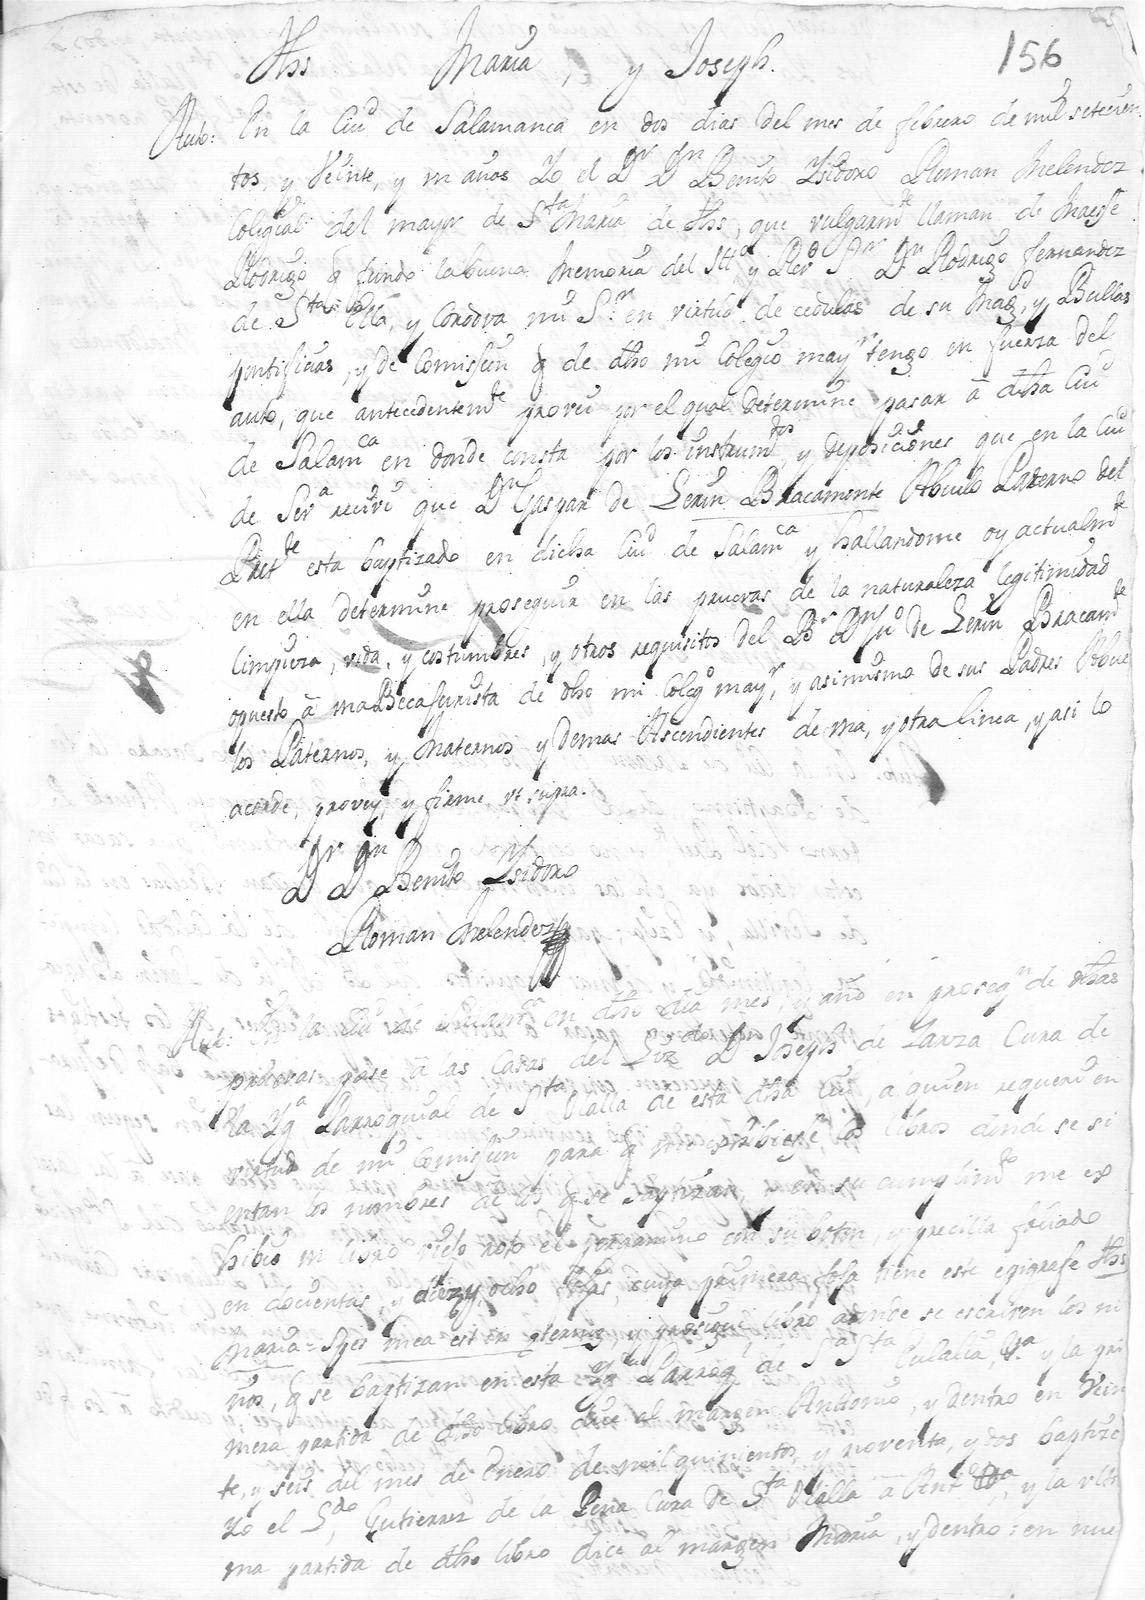 156
Jhs Maria, y Joseph.
Auto: En la Ciud de Salamanca en dos dias del mes de febrero de mil setecien
tos, y Veinte, y un años Yo el Dr Dn Benito Ysidoro Roman Melendez
Colegial del mayor de Sta Maria de Jhs, que vulgarmte llaman de Maesse
Rodrigo q fundo la buena memoria del Illo y Rmo Sr Dn Rodrigo fernandez
de Sta Ella, y Cordova mi Sr en virtud de cedulas de su Magd, y Bullas
pontificias, y de Comission q de dho mi Colegio mayr tengo en fuerza del
auto, que antecedentemte provei por el qual determine pasar à dha Ciud
de Salamca en donde consta por los instrumtos, y deposiciones que en la Ciud
de Seva recivi que Dn Gaspar de Lerin Bracamonte Abuelo Paterno del
Prete esta baptizado en dicha Ciud de Salamca y hallandome oy actualmte
en ella determine proseguir en las pruevas de la naturaleza legitimidad
limpieza, vida, y costumbres, y otros requisitos del Br Dn Juo de Lerin Bracamte
opuesto à una Beca Jurista de dho mi Colego mayr, y asimismo de sus Padres Abue
los Paternos, y Maternos y demas Ascendientes de una, y otra linea, y asi lo
acorde, provey, y firme vt supra.
Dr Dn Benito Ysidoro
Roman Melendez
Aut: En la Ciud de Salamca en dho dia mes, y año en prosegn de dhas
pruevas pase à las Casas del Lizdo D Joseph de Lanza Cura de
la Yga Parroquial de Sta Olalla de esta dha Ciud, a quien requeri en
virtud de mi Comission para q me exhibiese los libros donde se si
entan los nombres de los q se baptizan, en su cumplimto me ex
hibio un libro viejo roto el pergamino con su boton, y precilla foliado
en docientas, y diez y ocho fojas, cuya primera foja tiene este epigrafe Jhs
Maria = Spes mea est in eternum, y prosigue libro adonde se escriven los ni
ños, q se baptizan en esta Yga Parroql de Sa Sta Eulalia, Va y la pri
mera partida de dho libro dice al margen Antonio, y dentro en Vein
te, y seis del mes de Enero de mil quinientos, y noventa, y dos baptize
Yo el Ldo Gutierrez de la Pena Cura de Sta Olalla à Anto y la vlti
ma partida de dho libro dice al margen Maria, y dentro: en nue